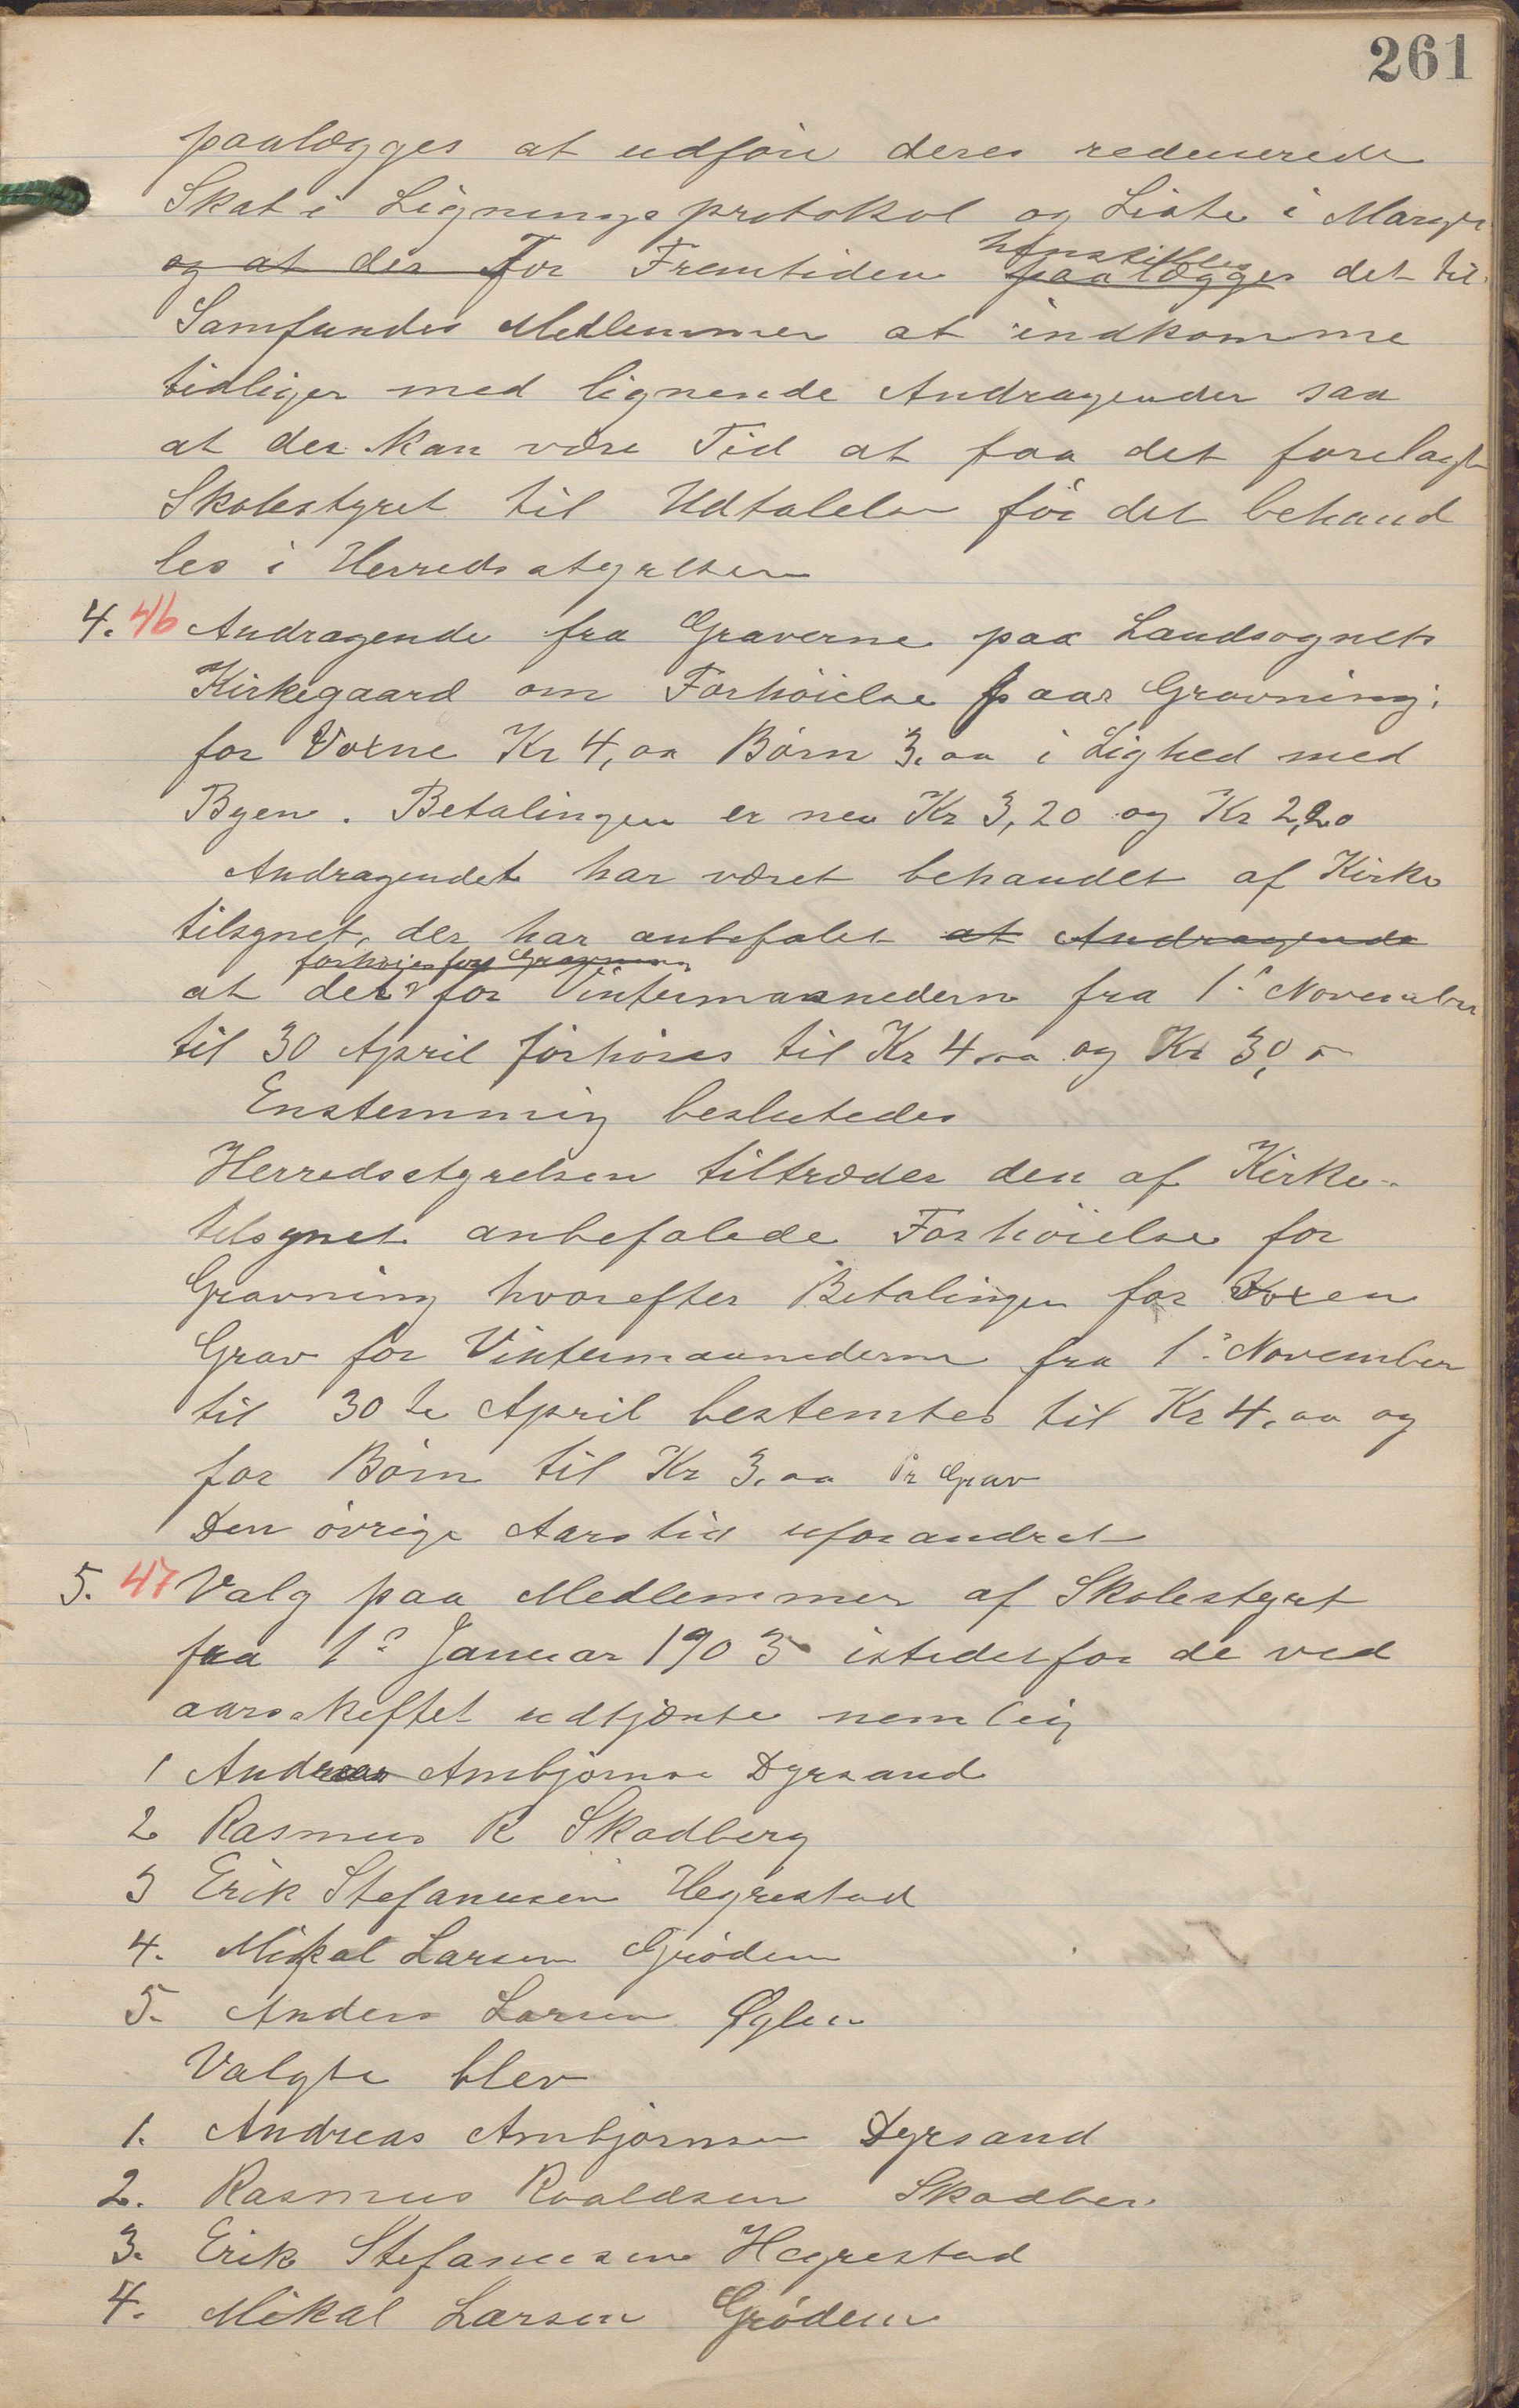 261
paalægges at udføre deres reducerede
Skat i Ligningsprotokol og Liste i Margen
og at der For Fremtiden paalægges henstilles det til
Samfundes Medlemmer at indkomme
tidliger med lignende Andragender saa
at der kan være Tid at faa det forelagt
Skolestyret til Udtalelse før det behand
les i Herredsstyrelsen
4. 46 Andragende fra Graverne paa Landsognets
Kirkegaard om Forhøielse paa Gravning.
for Voxne Kr 4,00 Børn 3.00 i Lighed med
Byen. Betalingen er nu Kr 3,20 og Kr 2,20
Andragendet har været behandlet af Kirke
tilsynet, der har anbefalet at Andragende
forhøies for Gravning
at det for Vintermaanederne fra 1ste November
til 30 April forhøies til Kr 4.00 og Kr 3,00
Enstemmig besluttedes
Herredsstyrelsen tiltræder den af Kirke-
tilsynet anbefalede Forhøielse for
Gravning hvorefter Betalingen for Voxen
Grav for Vintermaanederne fra 1ste November
til 30te April bestemtes til Kr 4,00 og
for Børn til Kr 3.00 Pr Grav
Den øvrige Aarstid uforandret
5. 47 Valg paa Medlemmer af Skolestyret
fra 1ste Januar 1903 istedetfor de ved
aarsskiftet udtjænte nemlig
1 Andreas Ambjørnsen Dyrsand
2 Rasmus R Skadberg
3 Erik Stefanusen Hegrestad
4. Mikal Larsen Grødem
5. Anders Larsen Øglen
Valgte blev
1. Andreas Ambjørnsen Dyrsand
2. Rasmus Roaldsen Skadber.
3. Erik Stefanusen Hegrestad
4. Mikal Larsen Grødem